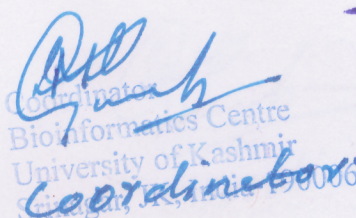 Coordinator
Bioinformatics Centre
University of Kashmir
Srinagar, JK, India 190006
Coordinator